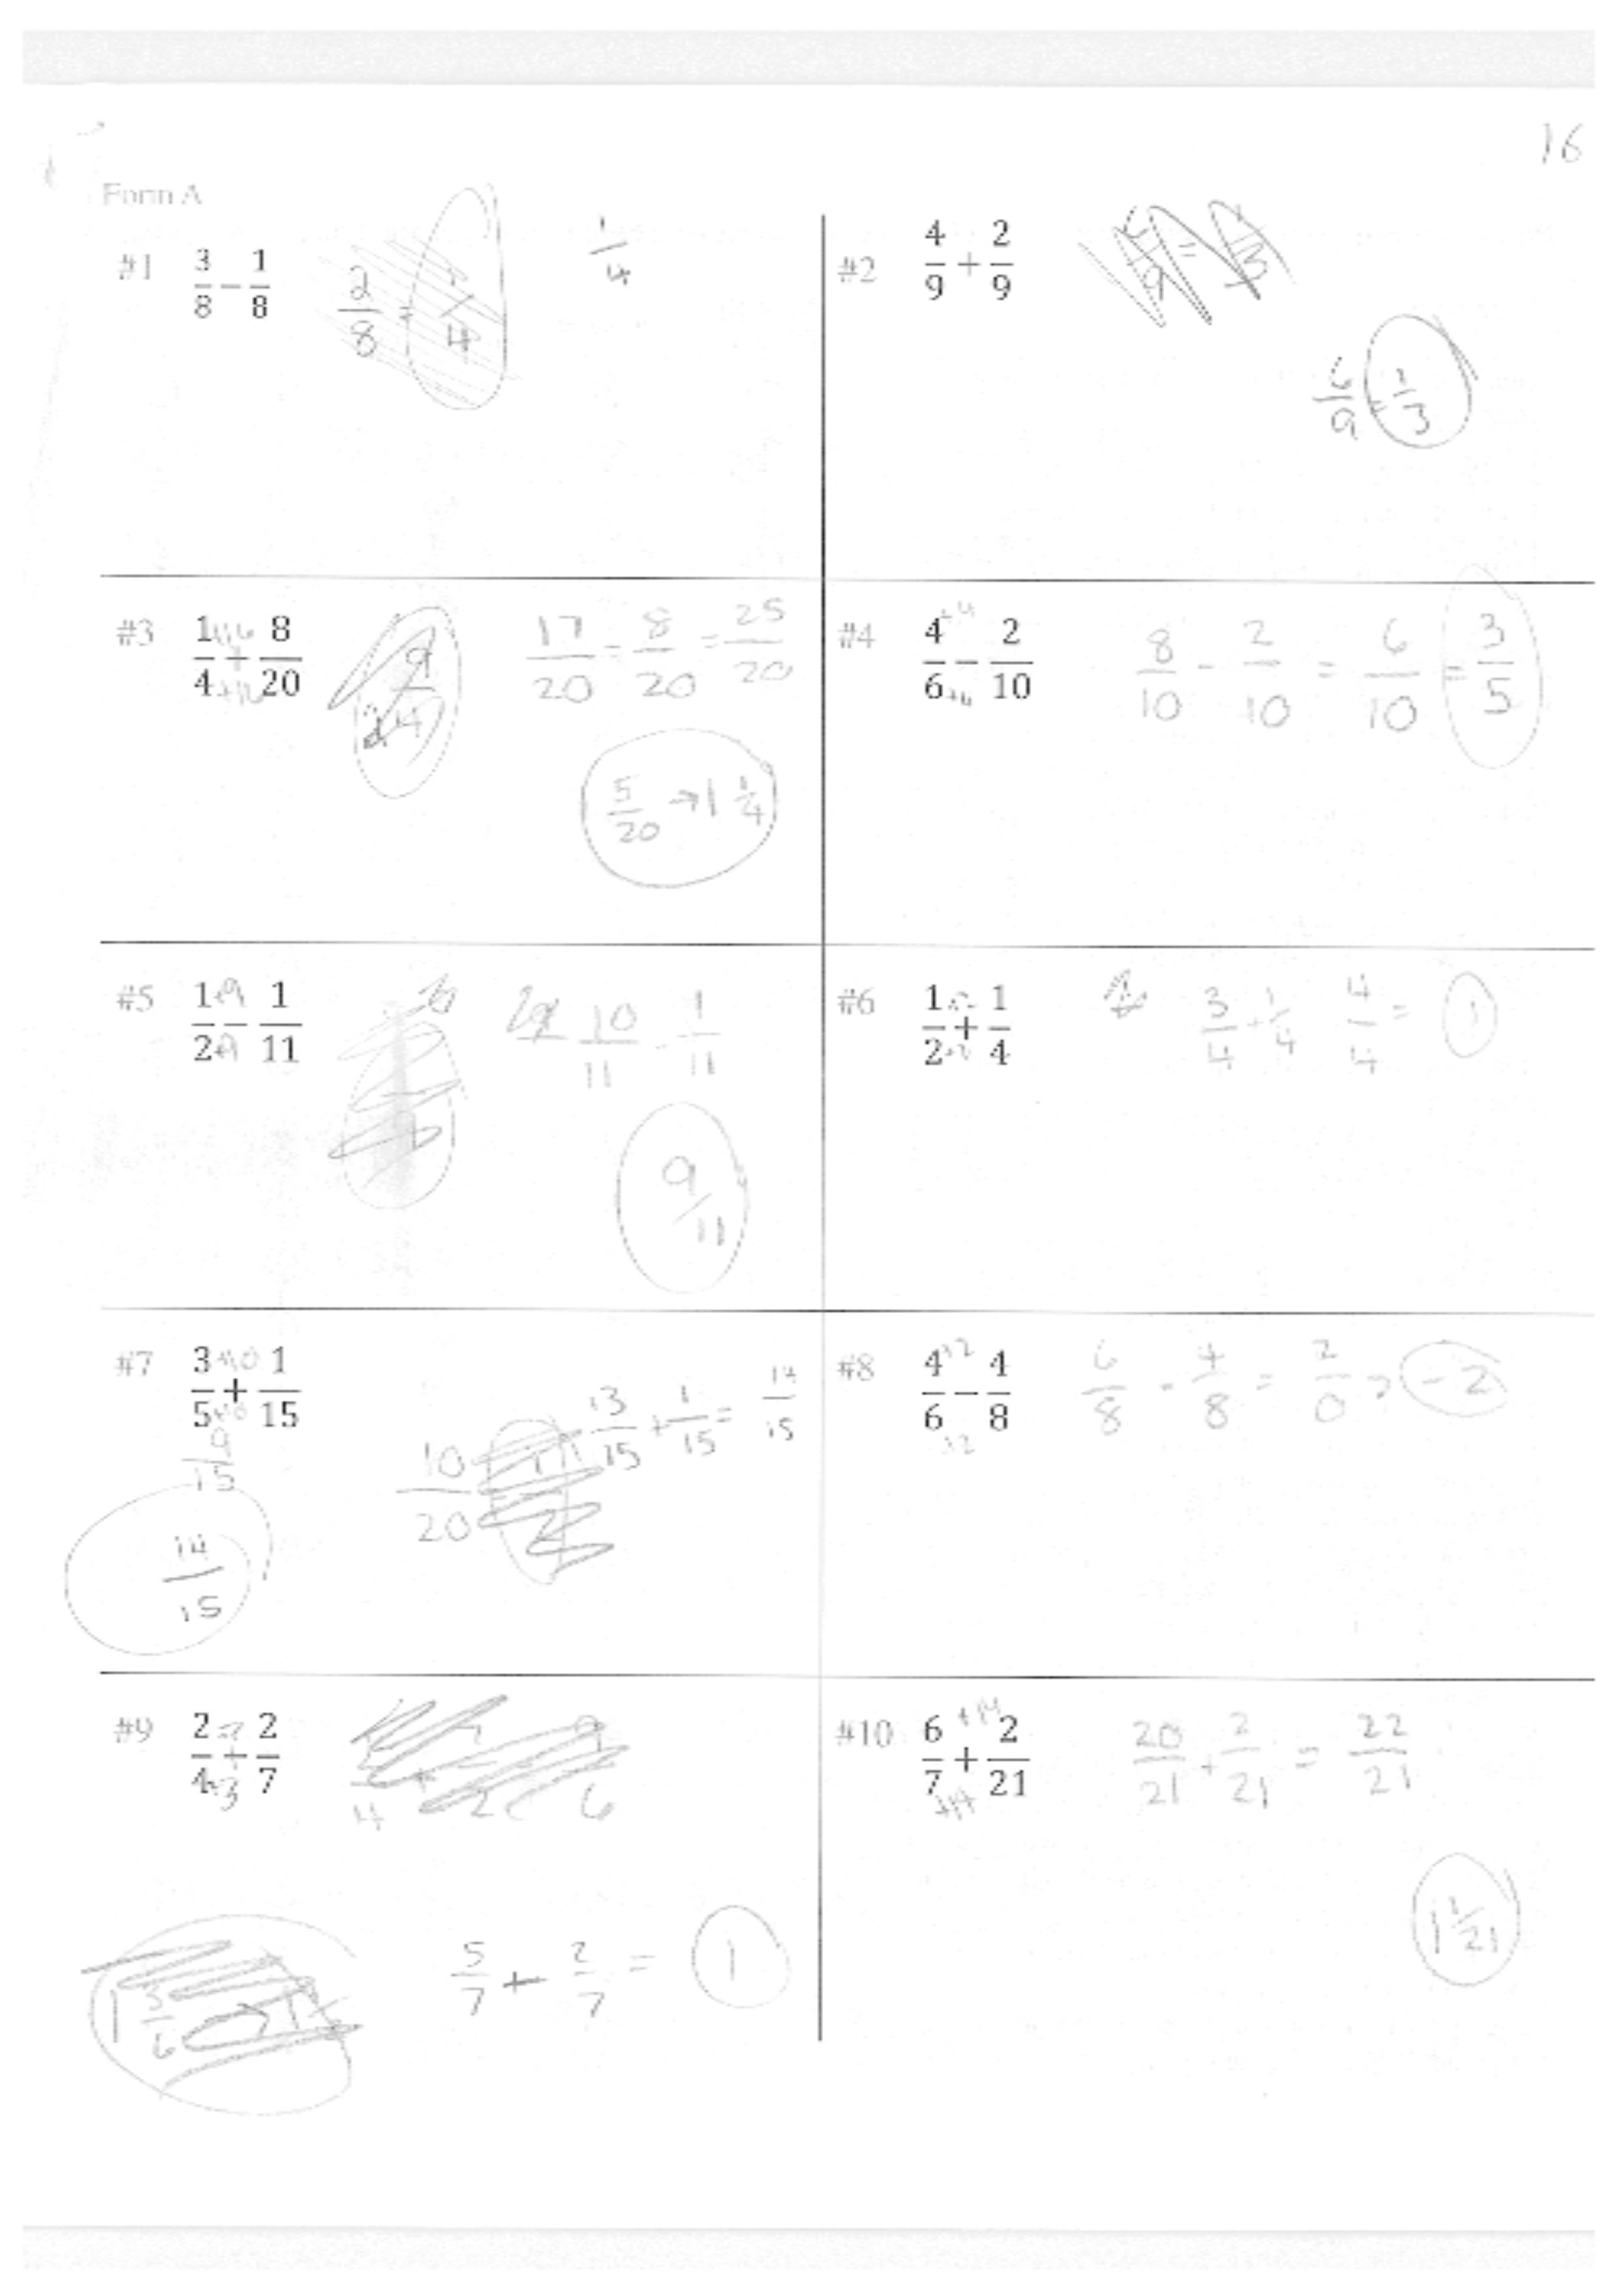 16
Form A
#1 3/8 − 1/8 2/8 = 1/4 1/4
#2 4/9 + 2/9
6/9 = 1/3
#3 1/4 + 8/20 17/20 - 8/20 = 25/20
5/20 → 1 1/4
#4 4/6 − 2/10 8/10 - 2/10 = 6/10 = 3/5
+4
+4
#5 1/2 − 1/11 10/11 - 1/11
+9
+9
9/11
#6 1/2 + 1/4 3/4 + 1/4 4/4 = 1
#7 3/5 + 1/15 13/15 + 1/15 = 14/15
9/15
10/20
14/15
#8 4/6 − 4/8 6/8 - 4/8 = 2/0 = - 2
+2
+2
#9 2/4 + 2/7
+3
1 3/6
5/7 + 2/7 = 1
#10 6/7 + 2/21 20/21 + 2/21 = 22/21
+14
+14
1 1/21